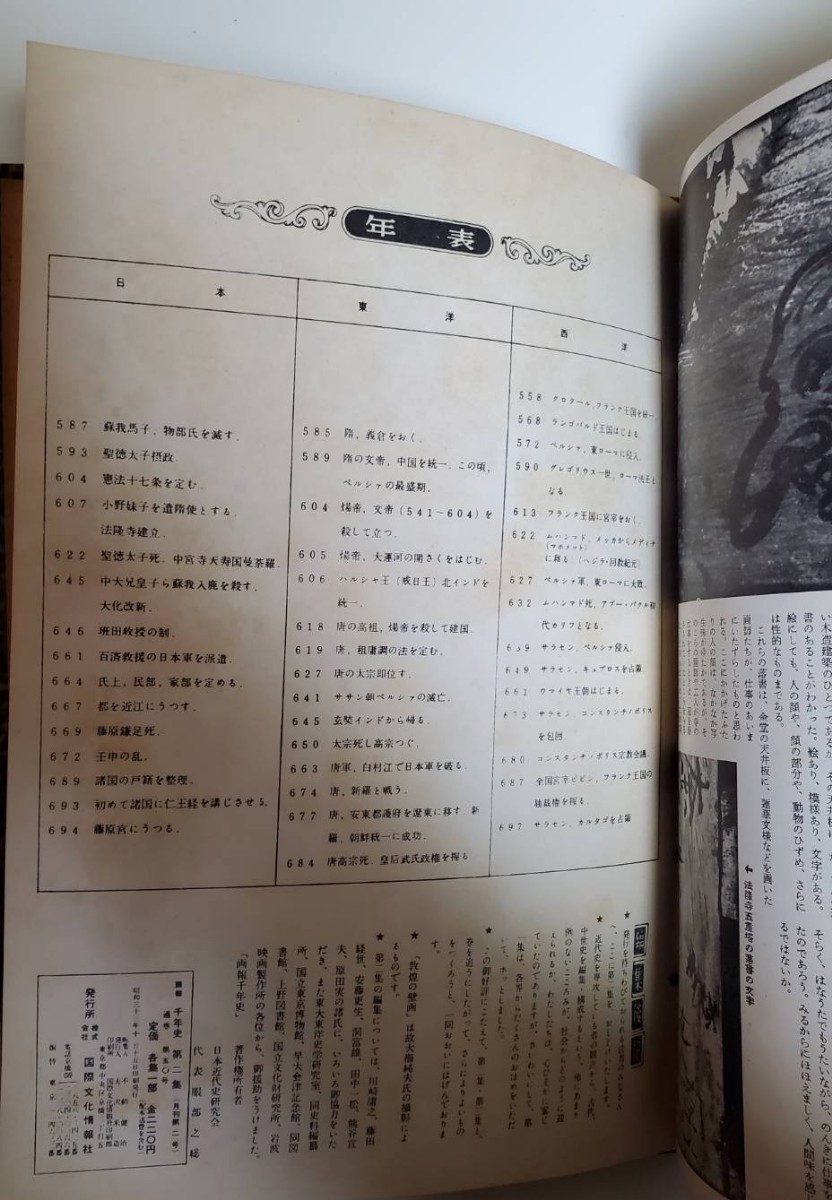 年表
日本
587 蘇我馬子、物部氏を滅す.
593 聖徳太子摂政.
604 憲法十七条を定む.
607 小野妹子を遣隋使とする.
法隆寺建立.
622 聖徳太子死. 中宮寺天寿国曼荼羅.
645 中大兄皇子ら蘇我入鹿を殺す.
大化改新.
646 班田收授の制.
661 百済救援の日本軍を派遣
664 氏上, 民部, 家部を定める.
667 都を近江にうつす.
669 藤原鎌足死.
672 壬申の乱.
689 諸国の戸籍を整理.
693 初めて諸国に仁王経を講じさせる.
694 藤原宮にうつる.
東洋
585 隋, 義倉をおく.
589 隋の文帝, 中国を統一. この頃,
ペルシャの最盛期.
604 煬帝, 文帝(541〜604)を
殺して立つ.
605 煬帝, 大運河の開さくをはじむ.
606 ハルシャ王(戒日王)北インドを
統一.
618 唐の高祖, 煬帝を殺して建国.
619 唐, 租庸調の法を定む.
627 唐の太宗即位す.
641 ササン朝ペルシャの滅亡.
645 玄奘インドから帰る.
650 太宗死し高宗つぐ.
663 唐軍, 白村江で日本軍を破る.
674 唐, 新羅と戦う.
677 唐, 安東都護府を遼東に移す 新
羅, 朝鮮統一に成功.
684 唐高宗死. 皇后武氏政権を握る
西洋
558 クロタール, フランク王国を統一
568 ランゴバルド王国はじまる.
572 ペルシャ, 東ローマに侵入.
590 グレゴリウス一世, ローマ法王と
なる.
613 フランク王国に宮宰をおく.
622 ムハンマド, メッカからメディナ
(マホメット)
に移る (ヘジラ・回教紀元)
627 ペルシャ軍, 東ローマに大敗.
632 ムハンマド死, アブー・バクル初
代カリフとなる.
639 サラセン, ペルシャ侵入.
649 サラセン, キュプロスを占領.
661 ウマイヤ王朝はじまる.
673 サラセン, コンスタンチノポリス
を包囲
680 コンスタンチノポリス宗教会議.
687 全国宮宰ピピン, フランク王国の
697 サラセン, カルタゴを占領
★発行を待ちわびておられる読者のみなさん
へ、ここに第二集をおとどけいたします。
★この御好評にこたえて、第二集、第三集と、
巻を追うにしたがって、さらによりよいもの
をつくろうと、一同おおいにはげんでおりま
す。
★「敦煌の壁画」は故大橋純夫氏の撮影によ
るものです。
★第二集の編集については、川崎庸之、藤田
経世、安藤更生、
夫、原田実の諸氏に、いろいろ御協力をいた
だき、また東大東洋史学研究室、同史料編纂
所、国立東京博物館、早大会津記念館、同図
書館、上野図書館、国立文化財研究所、岩波
映画製作所の各位から、御援助をうけました。
「画報千年史」 著作権所有者
日本近代史研究会
代表 服部之総
画報 千年史 第二集 (月刊第二号)
通巻 第五〇号
定価 各集一部 金二二〇円
発行所 株式会社 国際文化情報社
い木造建築のひとつであるが、その天井板に、
書のあることがわかった。絵あり、模様あり、文字がある。
絵にしても、人の顔や、顔の部分や、動物のひずめ、さらに
は性的なものまである。
これらの落書は、金堂の天井板に、蓮華文様などを画いた
画師たちが、仕事のあいま
にいたずらしたものと思わ
れる。ここにかかげたふた
りの人の顔は、なかなか写
←法隆寺五重塔の落書の文字
そらく、はなうたでもうたいながら、のんきに仕事
たのであろう。みるからにほほえましく、人間味を感じ
るではないか。